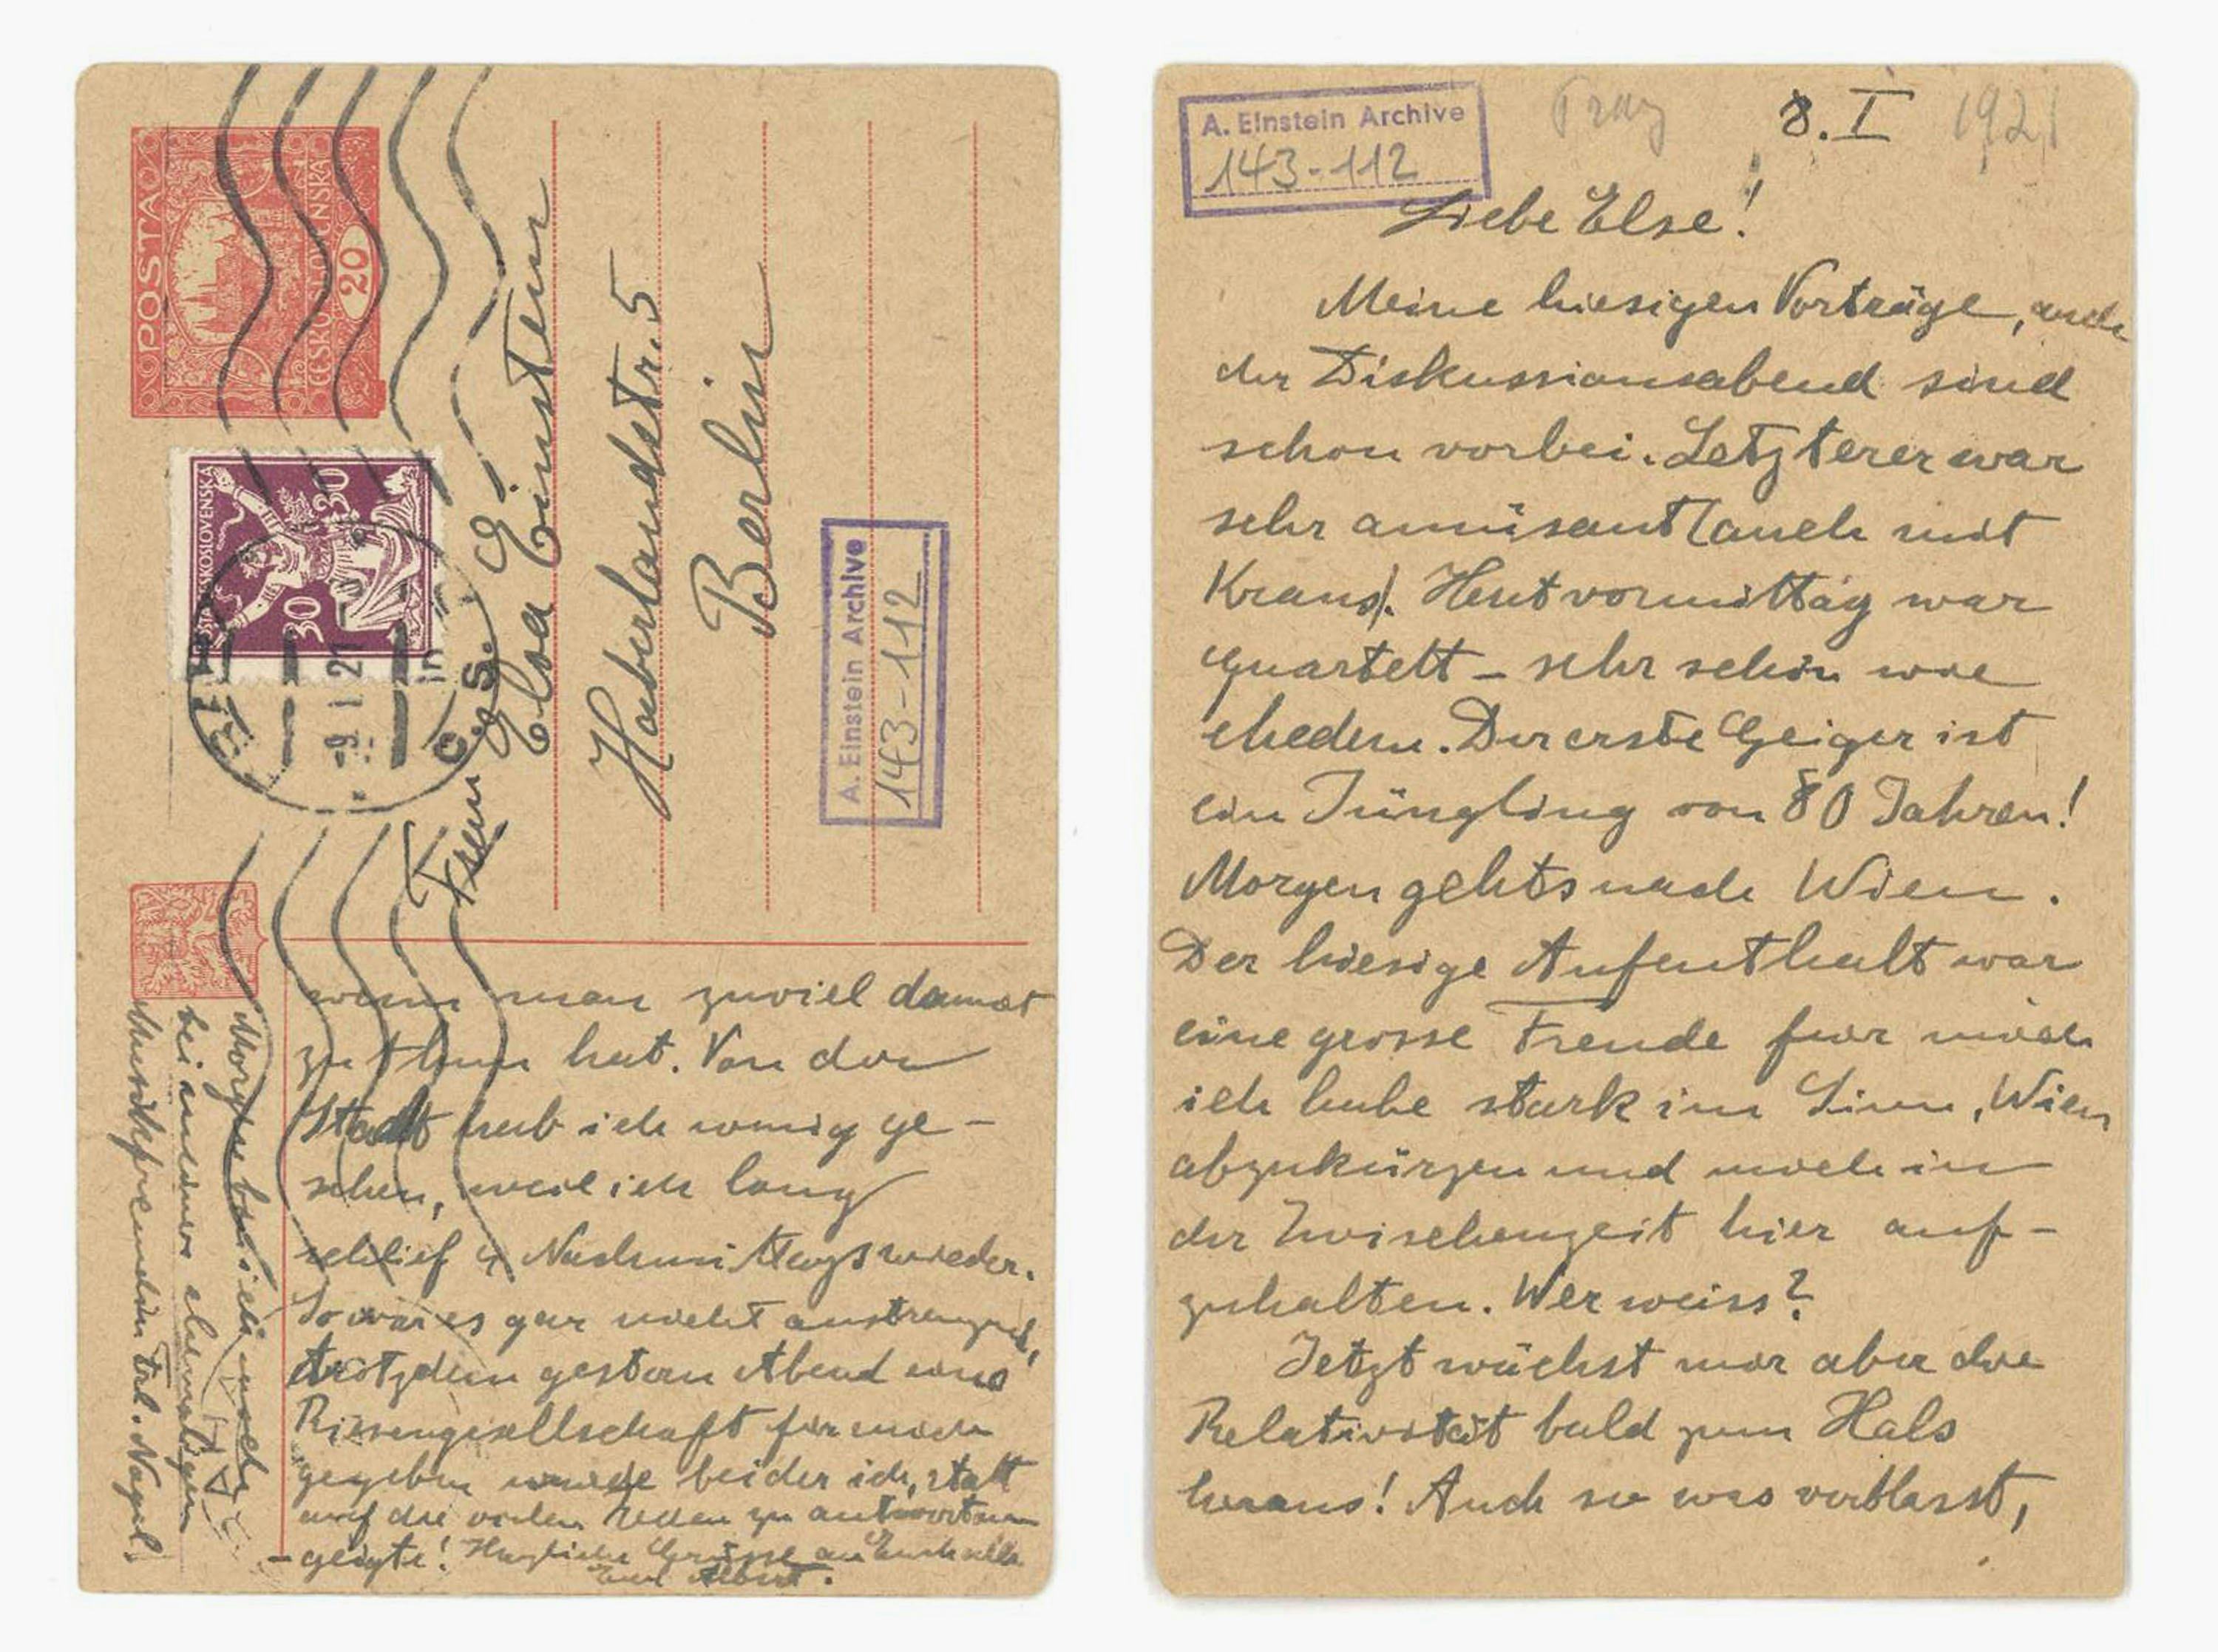 A. Einstein Archive
143-112
Prag 8. I 1921
Liebe Else!
Meine hiesigen Vorträge, auch
der Diskussionsabend sind
schon vorbei. Letzterer war
sehr amüsant (auch mit
Kraus). Heut vormittag war
Quartett – sehr schön wie
ehedem. Der erste Geiger ist
ein Jüngling von 80 Jahren!
Morgen gehts nach Wien.
Der hiesige Aufenthalt war
eine grosse Freude für mich
ich habe stark im Sinn, Wien
abzukürzen und mich in
der Zwischenzeit hier auf-
zuhalten. Wer weiss?
Jetzt wächst mir aber die
Relativität bald zum Hals
heraus! Auch so was verblasst,
wenn man zuviel damit
zu thun hat. Von der
Stadt hab ich wenig ge-
sehen, weil ich lang
schlief u. Nachmittags wieder.
So war es gar nicht anstrengend,
trotzdem gestern Abend eine
Riesengesellschaft für mich
gegeben wurde bei der ich, statt
auf die vielen Reden zu antworten
– geigte! Herzliche Grüsse an Euch alle
Euer Albert.
Morgen bin ich noch
bei meiner ehemaligen
Musikfreundin Frl. Nagel.
POSTA
ČESKOSLOVENSKÁ
20
ČESKOSLOVENSKÁ
30 30
-9.I.21
Č.S.
Frau
Elsa Einstein
Haberlandstr. 5
Berlin
A. Einstein Archive
143-112